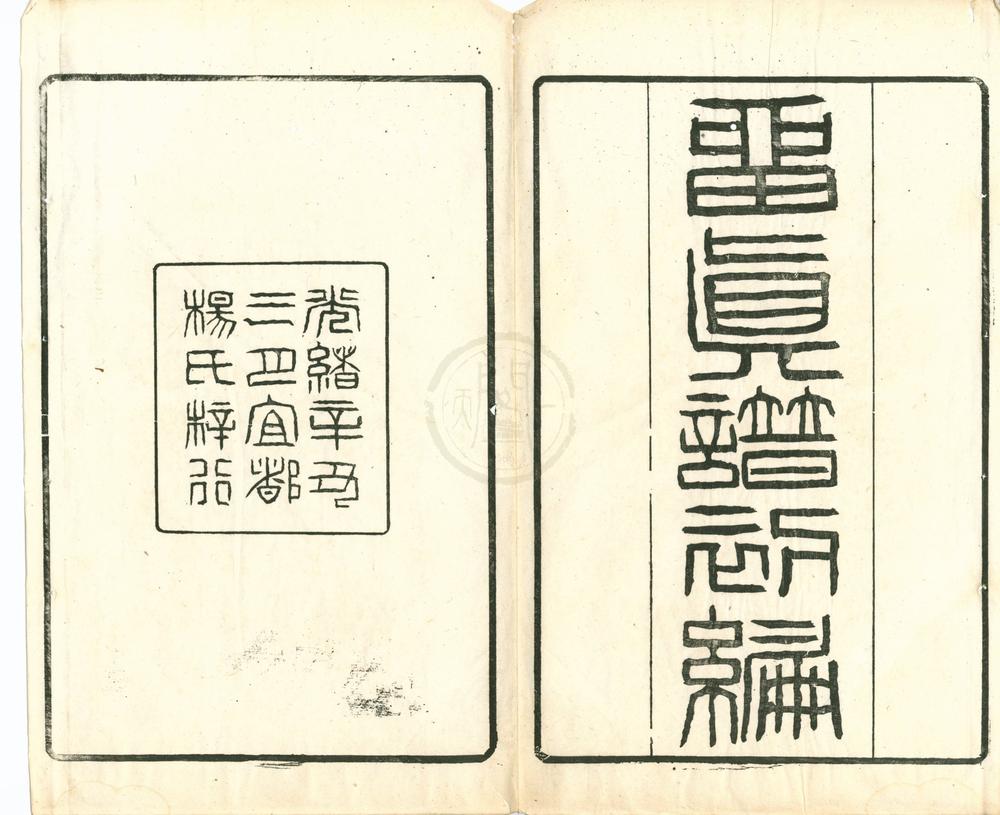 留眞譜初編
光緒辛丑
三月宜都
楊氏梓行